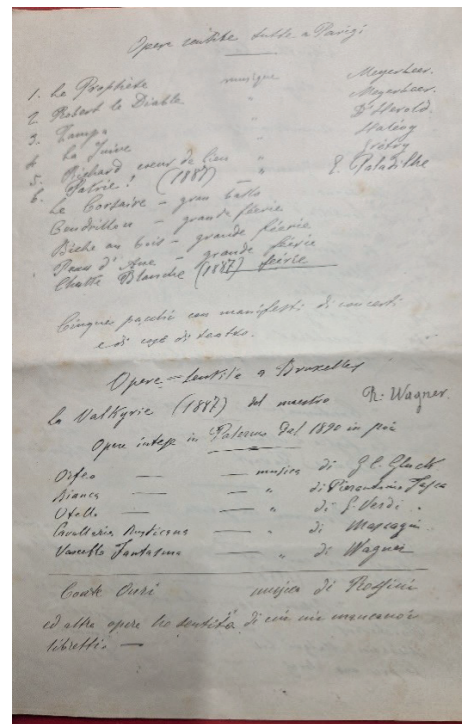 Opere sentite tutte a Parigi
1. Le Prophète musique Meyerbeer.
2. Robert le Diable " Meyerbeer.
3. Zampa " D'Herold.
4. La Juive " Halévy
5. Richard cœur de lion " Grétry
6. Patrie! (1887) — " E. Paladilhe
Le Corsaire — gran ballo
Cendrillon — grande féerie
Biche au bois — grande féerie
Peau d'Ane — grande féerie
Chatte Blanche (1887) féerie
Cinque pacchi con manifesti di concerti
e di cose di teatro.
Opere = sentite a Bruxelles
la Valkyrie (1887) del maestro R. Wagner.
Opere intese in Palermo dal 1890 in poi
Orfeo — — musica di G. C. Gluck
Bianca — — " di Pierantonio Tasca
Otello — — " di G. Verdi.
Cavalleria Rusticana — " di Mascagni
Vascello Fantasma — " di Wagner
Conte Ourì musica di Rossini
ed altre opere ho sentito di cui mi mancano i
libretti —